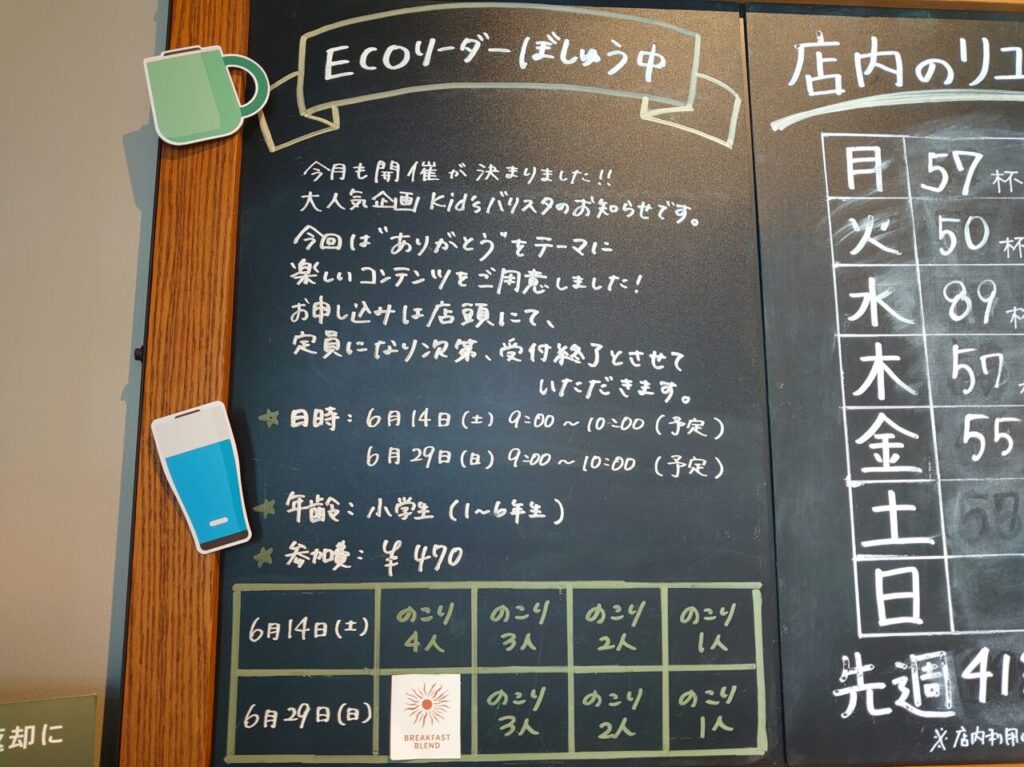 ECOリーダーぼしゅう中
今月も開催が決まりました!!
大人気企画Kid'sバリスタのお知らせです。
今回は"ありがとう"をテーマに
楽しいコンテンツをご用意しました!
お申し込みは店頭にて、
定員になり次第、受付終了とさせて
いただきます。
日時: 6月14日(土) 9:00~10:00 (予定)
6月29日(日) 9:00~10:00 (予定)
年齢: 小学生 (1~6年生)
参加費: ¥470
6月14日(土) のこり4人 のこり3人 のこり2人 のこり1人
6月29日(日) BREAKFAST BLEND のこり3人 のこり2人 のこり1人
店内のリユ
月 57杯
火 50杯
水 89杯
木 57
金 55
土
日
先週 41
※店内利用の
却に